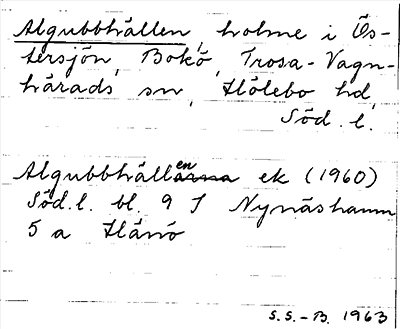 Algubbhällen, holme i Ös-
tersjön, Bokö, Trosa-Vagn-
härads sn, Hölebo hd,
Söd. l.
Algubbhällarna en ek (1960)
Söd. l. bl. 9 I Nynäshamn
5 a Hånö
S.S.-B. 1963